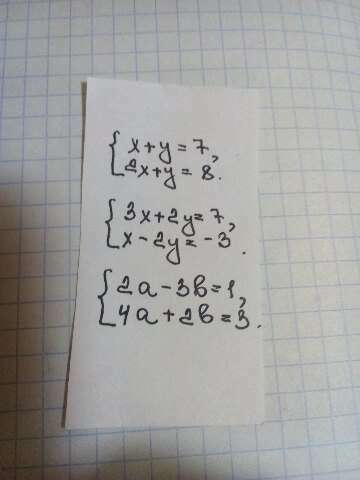 x+y=7,
2x+y=8.
3x+2y=7,
x-2y=-3.
2a-3b=1,
4a+2b=3.